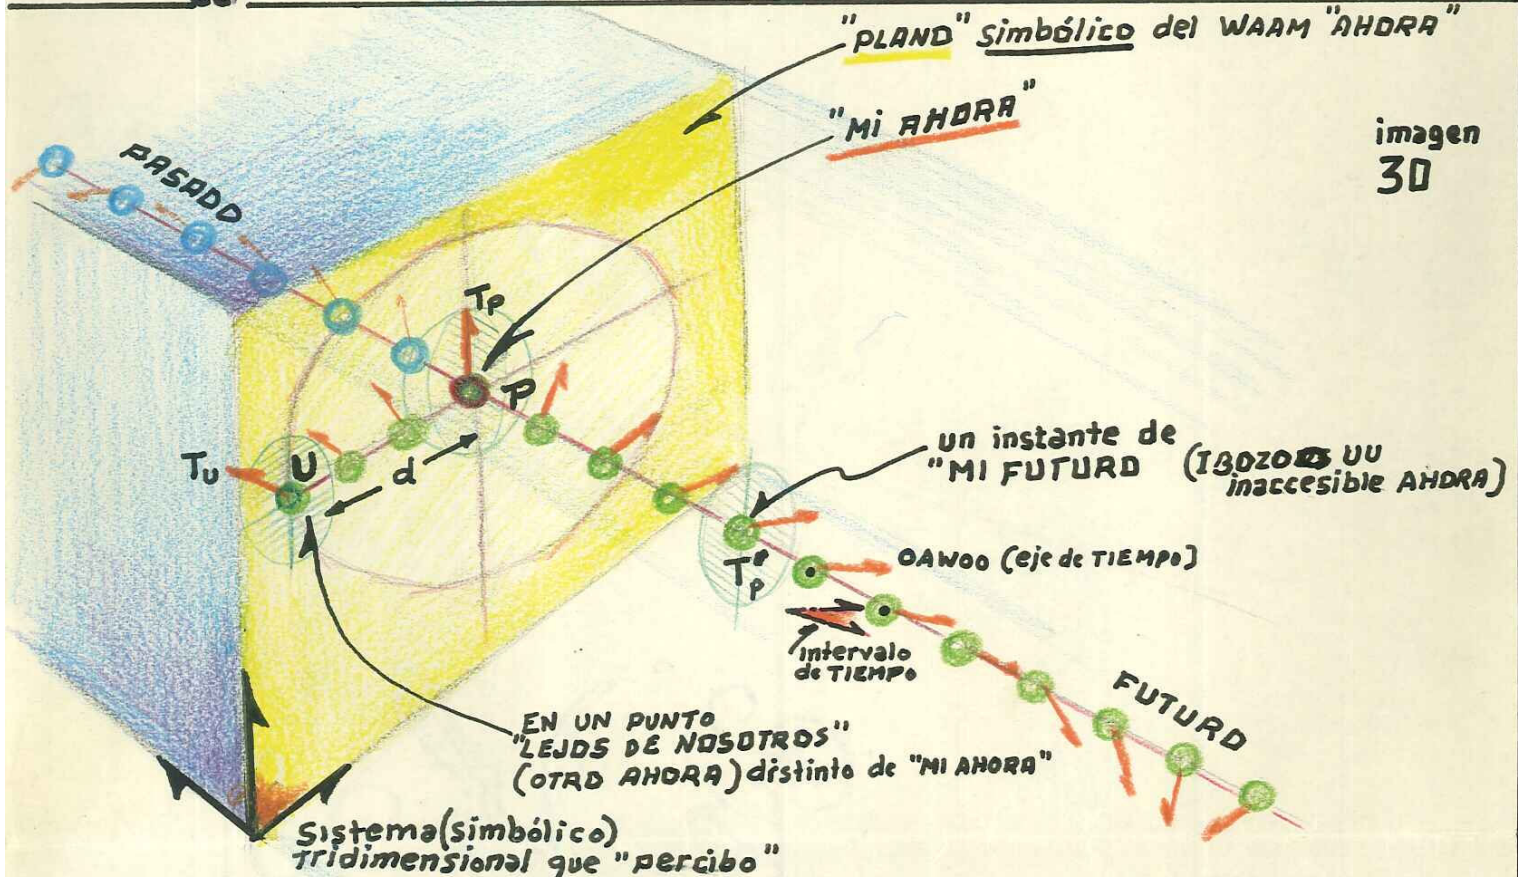 "PLANO" simbólico del WAAM "AHORA"
"Mi AHORA"
imagen
30
PASADO
Tp
P
TU
U
d
un instante de
"MI FUTURO (IBOZOO UU
inaccesible AHORA)
T*p
OAWOO (eje de TIEMPO)
intervalo
de TIEMPO
FUTURO
EN UN PUNTO
"LEJOS DE NOSOTROS"
(OTRO AHORA) distinto de "MI AHORA"
Sistema (simbólico)
Tridimensional que "percibo"